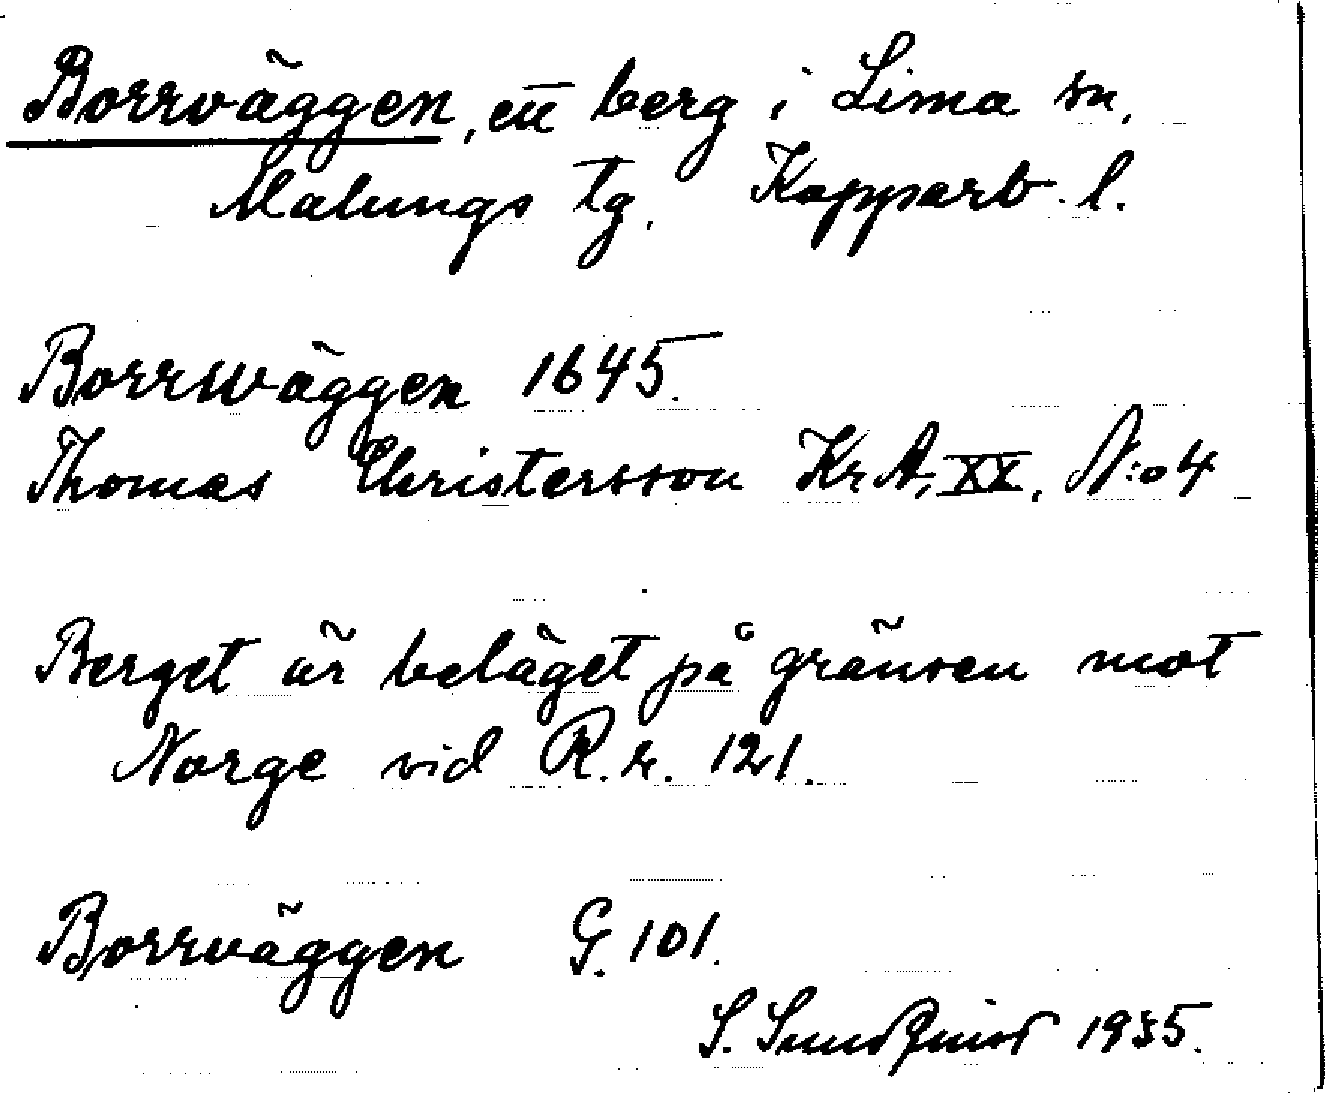 Borrväggen, ett berg i Lima sn,
Malungs tg. Kopparb. l.
Borrwäggen 1645.
Thomas Christersson Kr. A, XX, N:o 4
Berget är beläget på gränsen mot
Norge vid R. r. 121.
Borrväggen G. 101.
S. Sundquist 1935.